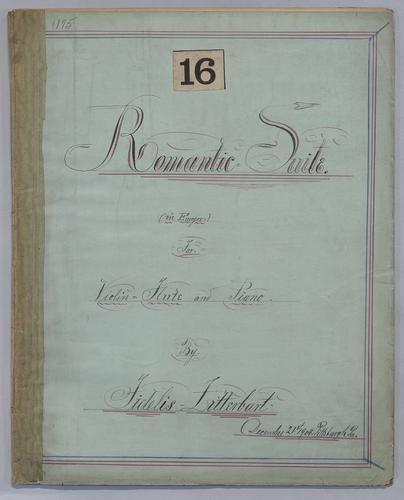 1195
16
Romantic Suite.
For
Violin - Flute and Piano.
By
Fidelis Zitterbart.
December 21st 1904. Pittsburgh Pa.